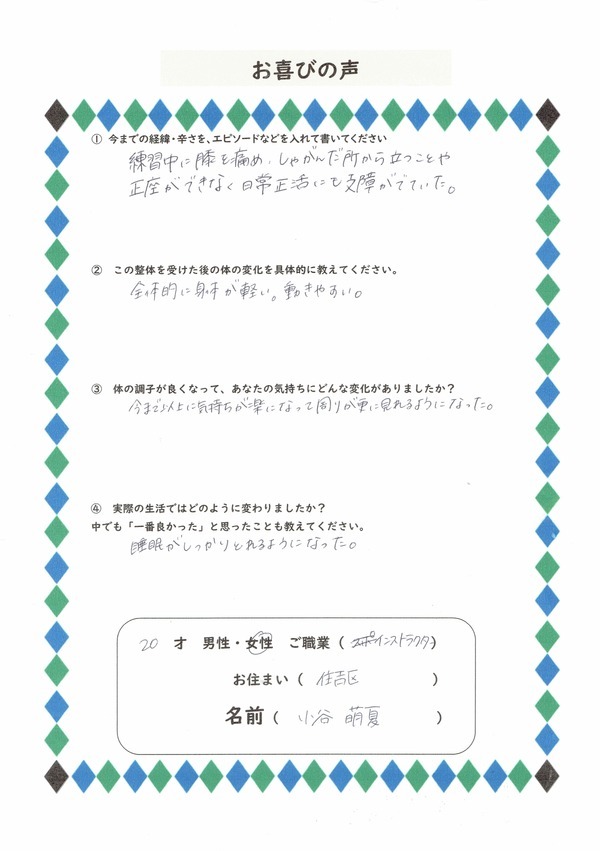 お喜びの声
① 今までの経緯・辛さを、エピソードなどを入れて書いてください
練習中に膝を痛め、しゃがんだ所から立つことや
正座ができなく日常正活にも支障がでていた。
② この整体を受けた後の体の変化を具体的に教えてください。
全体的に身体が軽い。動きやすい。
③ 体の調子が良くなって、あなたの気持ちにどんな変化がありましたか?
今まで以上に気持ちが楽になって周りが更に見れるようになった。
④ 実際の生活ではどのように変わりましたか?
中でも「一番良かった」と思ったことも教えてください。
睡眠がしっかりとれるようになった。
20 才 男性・女性 ご職業 ( インストラクター )
お住まい ( 住吉区 )
名前 ( 小谷 萌夏 )